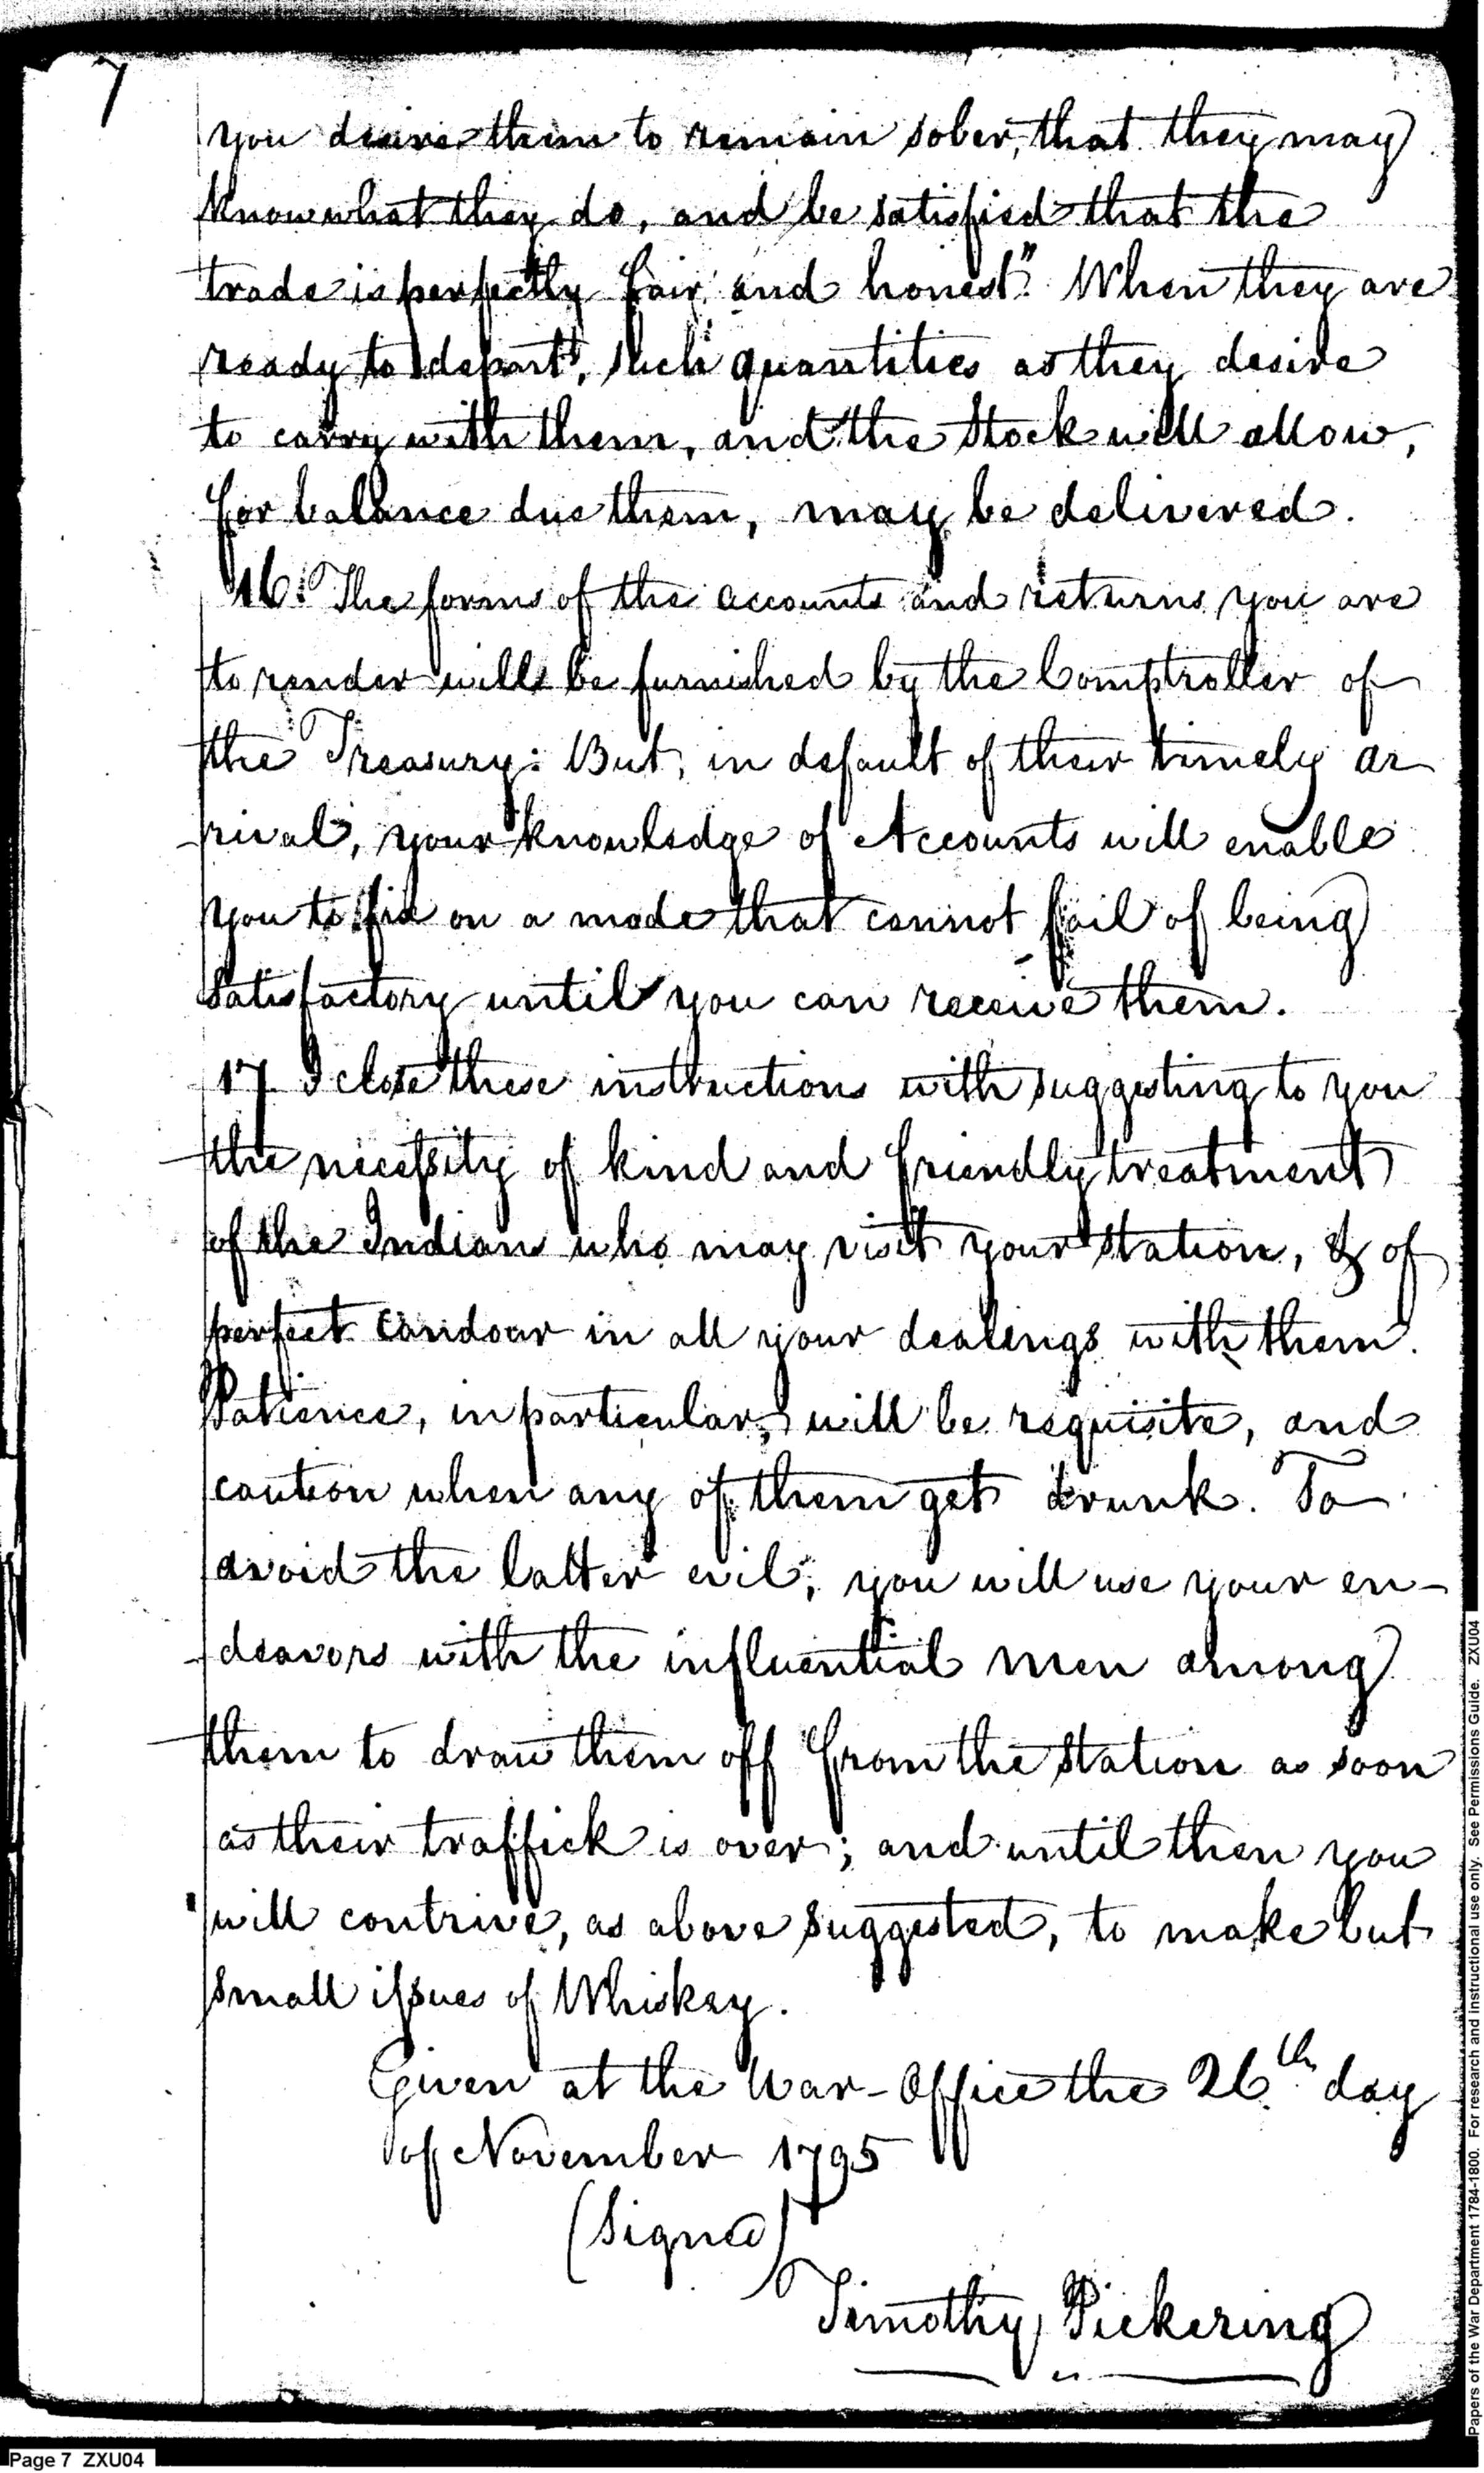 7
you desire them to remain sober, that they may
know what they do, and be satisfied that the
trade is perfectly fair and honest". When they are
ready to depart, such quantities as they desire
to carry with them, and the Stock will allow,
for balance due them, may be delivered.
16. The forms of the accounts and returns you are
to render will be furnished by the Comptroller of
the Treasury: But, in default of their timely ar
rival, your knowledge of Accounts will enable
you to fix on a mode that cannot fail of being
Satisfactory until you can receive them.
17 I close these instructions with suggesting to you
the necessity of kind and friendly treatment
of the Indians who may visit your station, & of
perfect candour in all your dealings with them.
Patience, in particular, will be requisite, and
caution when any of them get drunk. To
avoid the latter evil, you will use your en-
deavors with the influential men among
them to draw them off from the station as soon
as their traffick is over; and until then you
will contrive, as above suggested, to make but
small issues of Whiskey.
Given at the War-Office the 26th day
of November 1795
(Signed)
Timothy Pickering
Page 7 ZXU04
Papers of the War Department 1784-1800. For research and instructional use only. See Permissions Guide. ZXU04